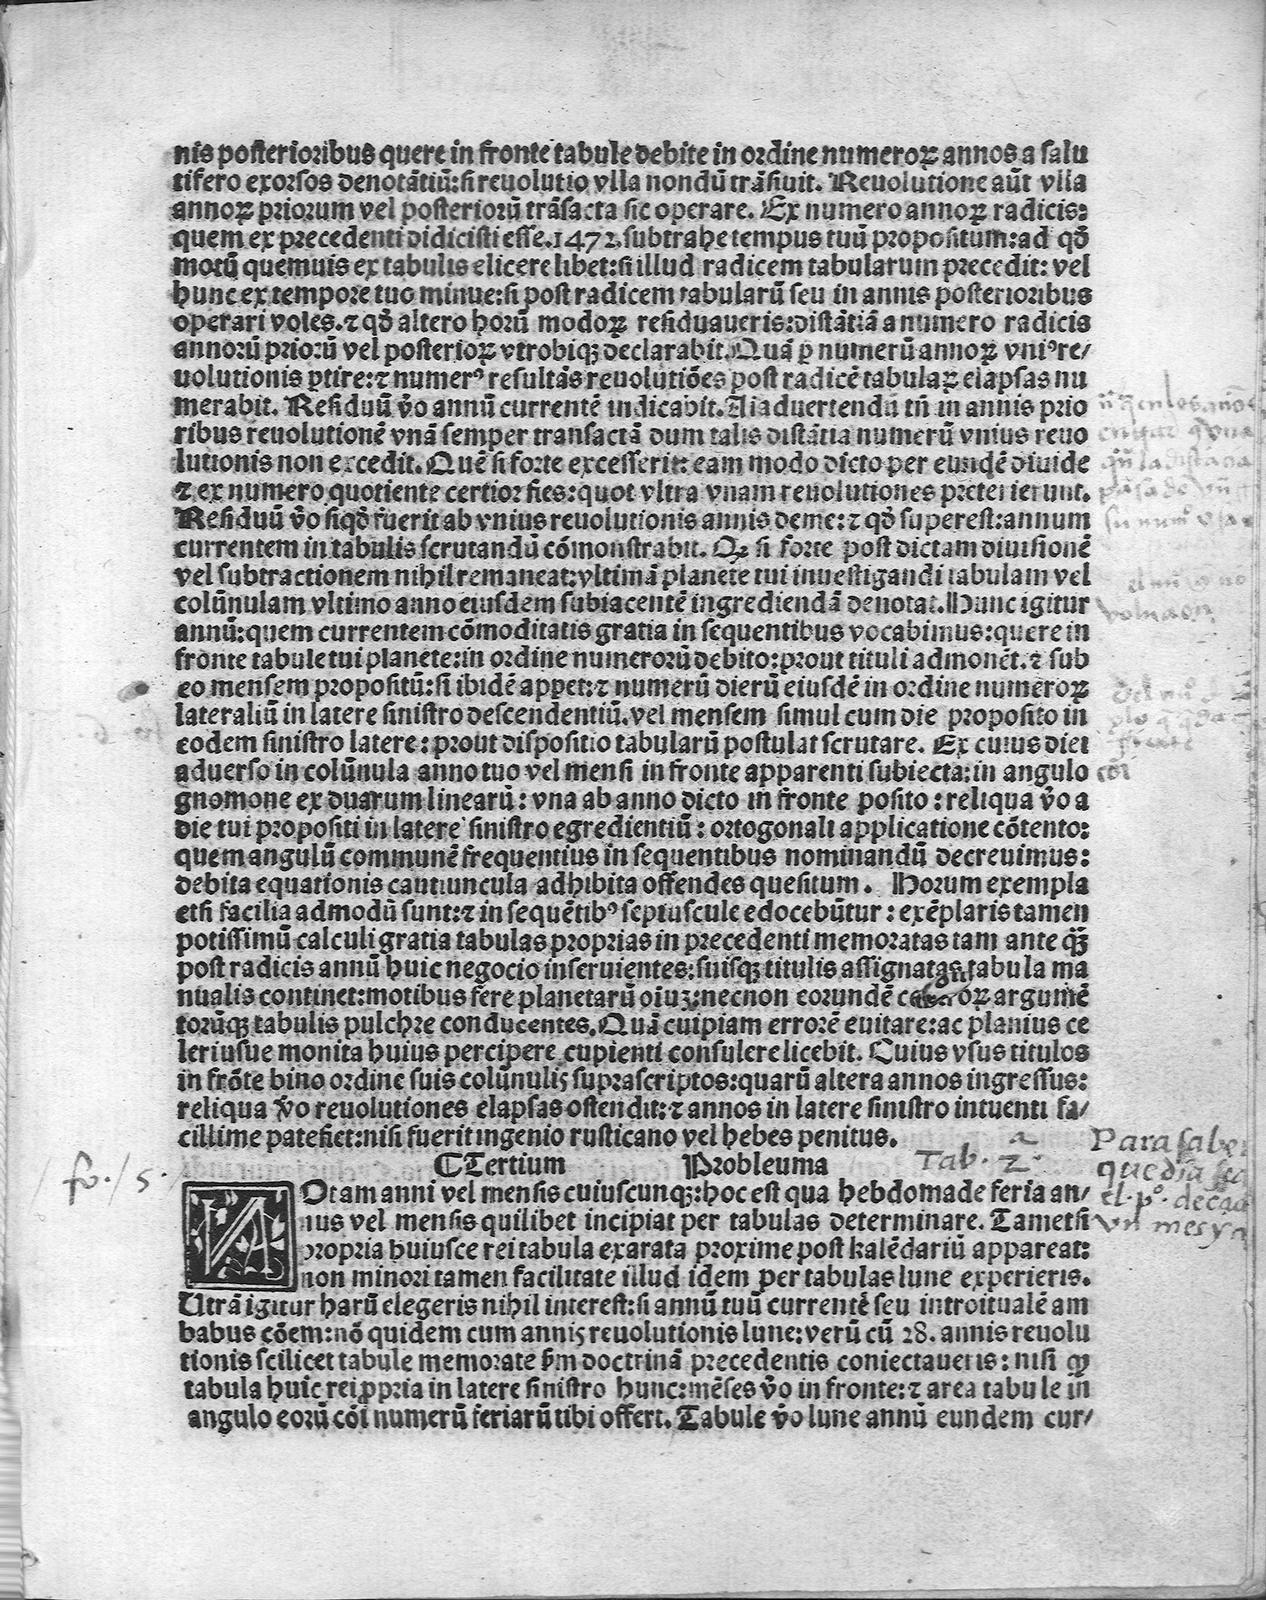 nis posterioribus quere in fronte tabule debite in ordine numeroꝝ annos a salu
tifero exorsos denotãtiũ: si reuolutio vlla nondũ trãsiuit. Reuolutione aũt vlla
annoꝝ priorum vel posteriorũ trãsacta sic operare. Ex numero annoꝝ radicis:
quem ex precedenti didicisti esse .1472. subtrahe tempus tuũ propositum: ad qď
motũ quemuis ex tabulis elicere libet: si illud radicem tabularum precedit: vel
hunc ex tempore tuo minue: si post radicem tabularũ seu in annis posterioribus
operari voles. ⁊ qď altero horũ modoꝝ residuaueris: distãtiã a numero radicis
annorũ priorũ vel posterioꝝ vtrobiqꝫ declarabit. Quã ꝑ numerũ annoꝝ vniꝰ re/
uolutionis ꝑtire: ⁊ numerꝰ resultãs reuolutiões post radicẽ tabulaꝝ elapsas nu
merabit. Residuũ ṽo annũ currentẽ indicabit. Aĩaduertendũ tñ in annis prio
ribus reuolutionẽ vnã semper transactã dum talis distãtia numerũ vnius reuo
lutionis non excedit. Quẽ si forte excesserit: eam modo dicto per eundẽ diuide
⁊ ex numero quotiente certior fies: quot vltra vnam reuolutiones preterierunt.
Residuũ ṽo siqď fuerit ab vnius reuolutionis annis deme: ⁊ qď superest: annum
currentem in tabulis scrutandũ cõmonstrabit. Qꝝ si forte post dictam diuisionẽ
vel subtractionem nihil remaneat: vltimã planete tui inuestigandi tabulam vel
colũnulam vltimo anno eiusdem subiacentẽ ingrediendã denotat. Hunc igitur
annũ: quem currentem cõmoditatis gratia in sequentibus vocabimus: quere in
fronte tabule tui planete: in ordine numerorũ debito: prout tituli admonẽt. ⁊ sub
eo mensem propositũ: si ibidẽ appet: ⁊ numerũ dierũ eiusdẽ in ordine numeroꝝ
lateraliũ in latere sinistro descendentiũ. vel mensem simul cum die proposito in
eodem sinistro latere: prout dispositio tabularũ postulat scrutare. Ex cuius diei
aduerso in colũnula anno tuo vel mensi in fronte apparenti subiecta: in angulo cõi
gnomone ex duarum linearũ: vna ab anno dicto in fronte posito: reliqua ṽo a
die tui propositi in latere sinistro egredientiũ: ortogonali applicatione cõtento:
quem angulũ communẽ frequentius in sequentibus nominandũ decreuimus:
debita equationis cautiuncula adhibita offendes quesitum. Horum exempla
etsi facilia admodũ sunt: ⁊ in sequẽtibꝰ sepiuscule edocebũtur: exẽplaris tamen
potissimũ calculi gratia tabulas proprias in precedenti memoratas tam ante qꝫ̃
post radicis annũ huic negocio inseruientes: suisqꝫ titulis assignatas tabula ma
nualis continet: motibus fere planetarũ oĩuꝫ: necnon eorundẽ argumẽ
torũqꝫ tabulis pulchre conducentes. Quã cuipiam errorẽ euitare: ac planius ce
leriusue monita huius percipere cupienti consulere licebit. Cuius vsus titulos
in frõte bino ordine suis colũnulis suprascriptos: quarũ altera annos ingressus:
reliqua ṽo reuolutiones elapsas ostendit: ⁊ annos in latere sinistro intuenti fa/
cillime patefiet: nisi fuerit ingenio rusticano vel hebes penitus.
⁋Tertium Probleuma Tab. 2ª.
fo. / 5.
NOtam anni vel mensis cuiuscunqꝫ: hoc est qua hebdomade feria an/
nus vel mensis quilibet incipiat per tabulas determinare. Tametsi
propria huiusce rei tabula exarata proxime post kalẽdariũ appareat:
non minori tamen facilitate illud idem per tabulas lune experieris.
Utrã igitur harũ elegeris nihil interest: si annũ tuũ currentẽ seu introitualẽ am
babus cõem: nõ quidem cum annis reuolutionis lune: verũ cũ 28. annis reuolu
tionis scilicet tabule memorate ẜm doctrinã precedentis coniectaueris: nisi qꝫ
tabula huic rei ꝓpria in latere sinistro hunc: mẽses ṽo in fronte: ⁊ area tabule in
angulo eorũ cõi numerũ feriarũ tibi offert. Tabule ṽo lune annũ eundem cur/
Para sabe
que dia
el. pº. de cada
vn mes ya